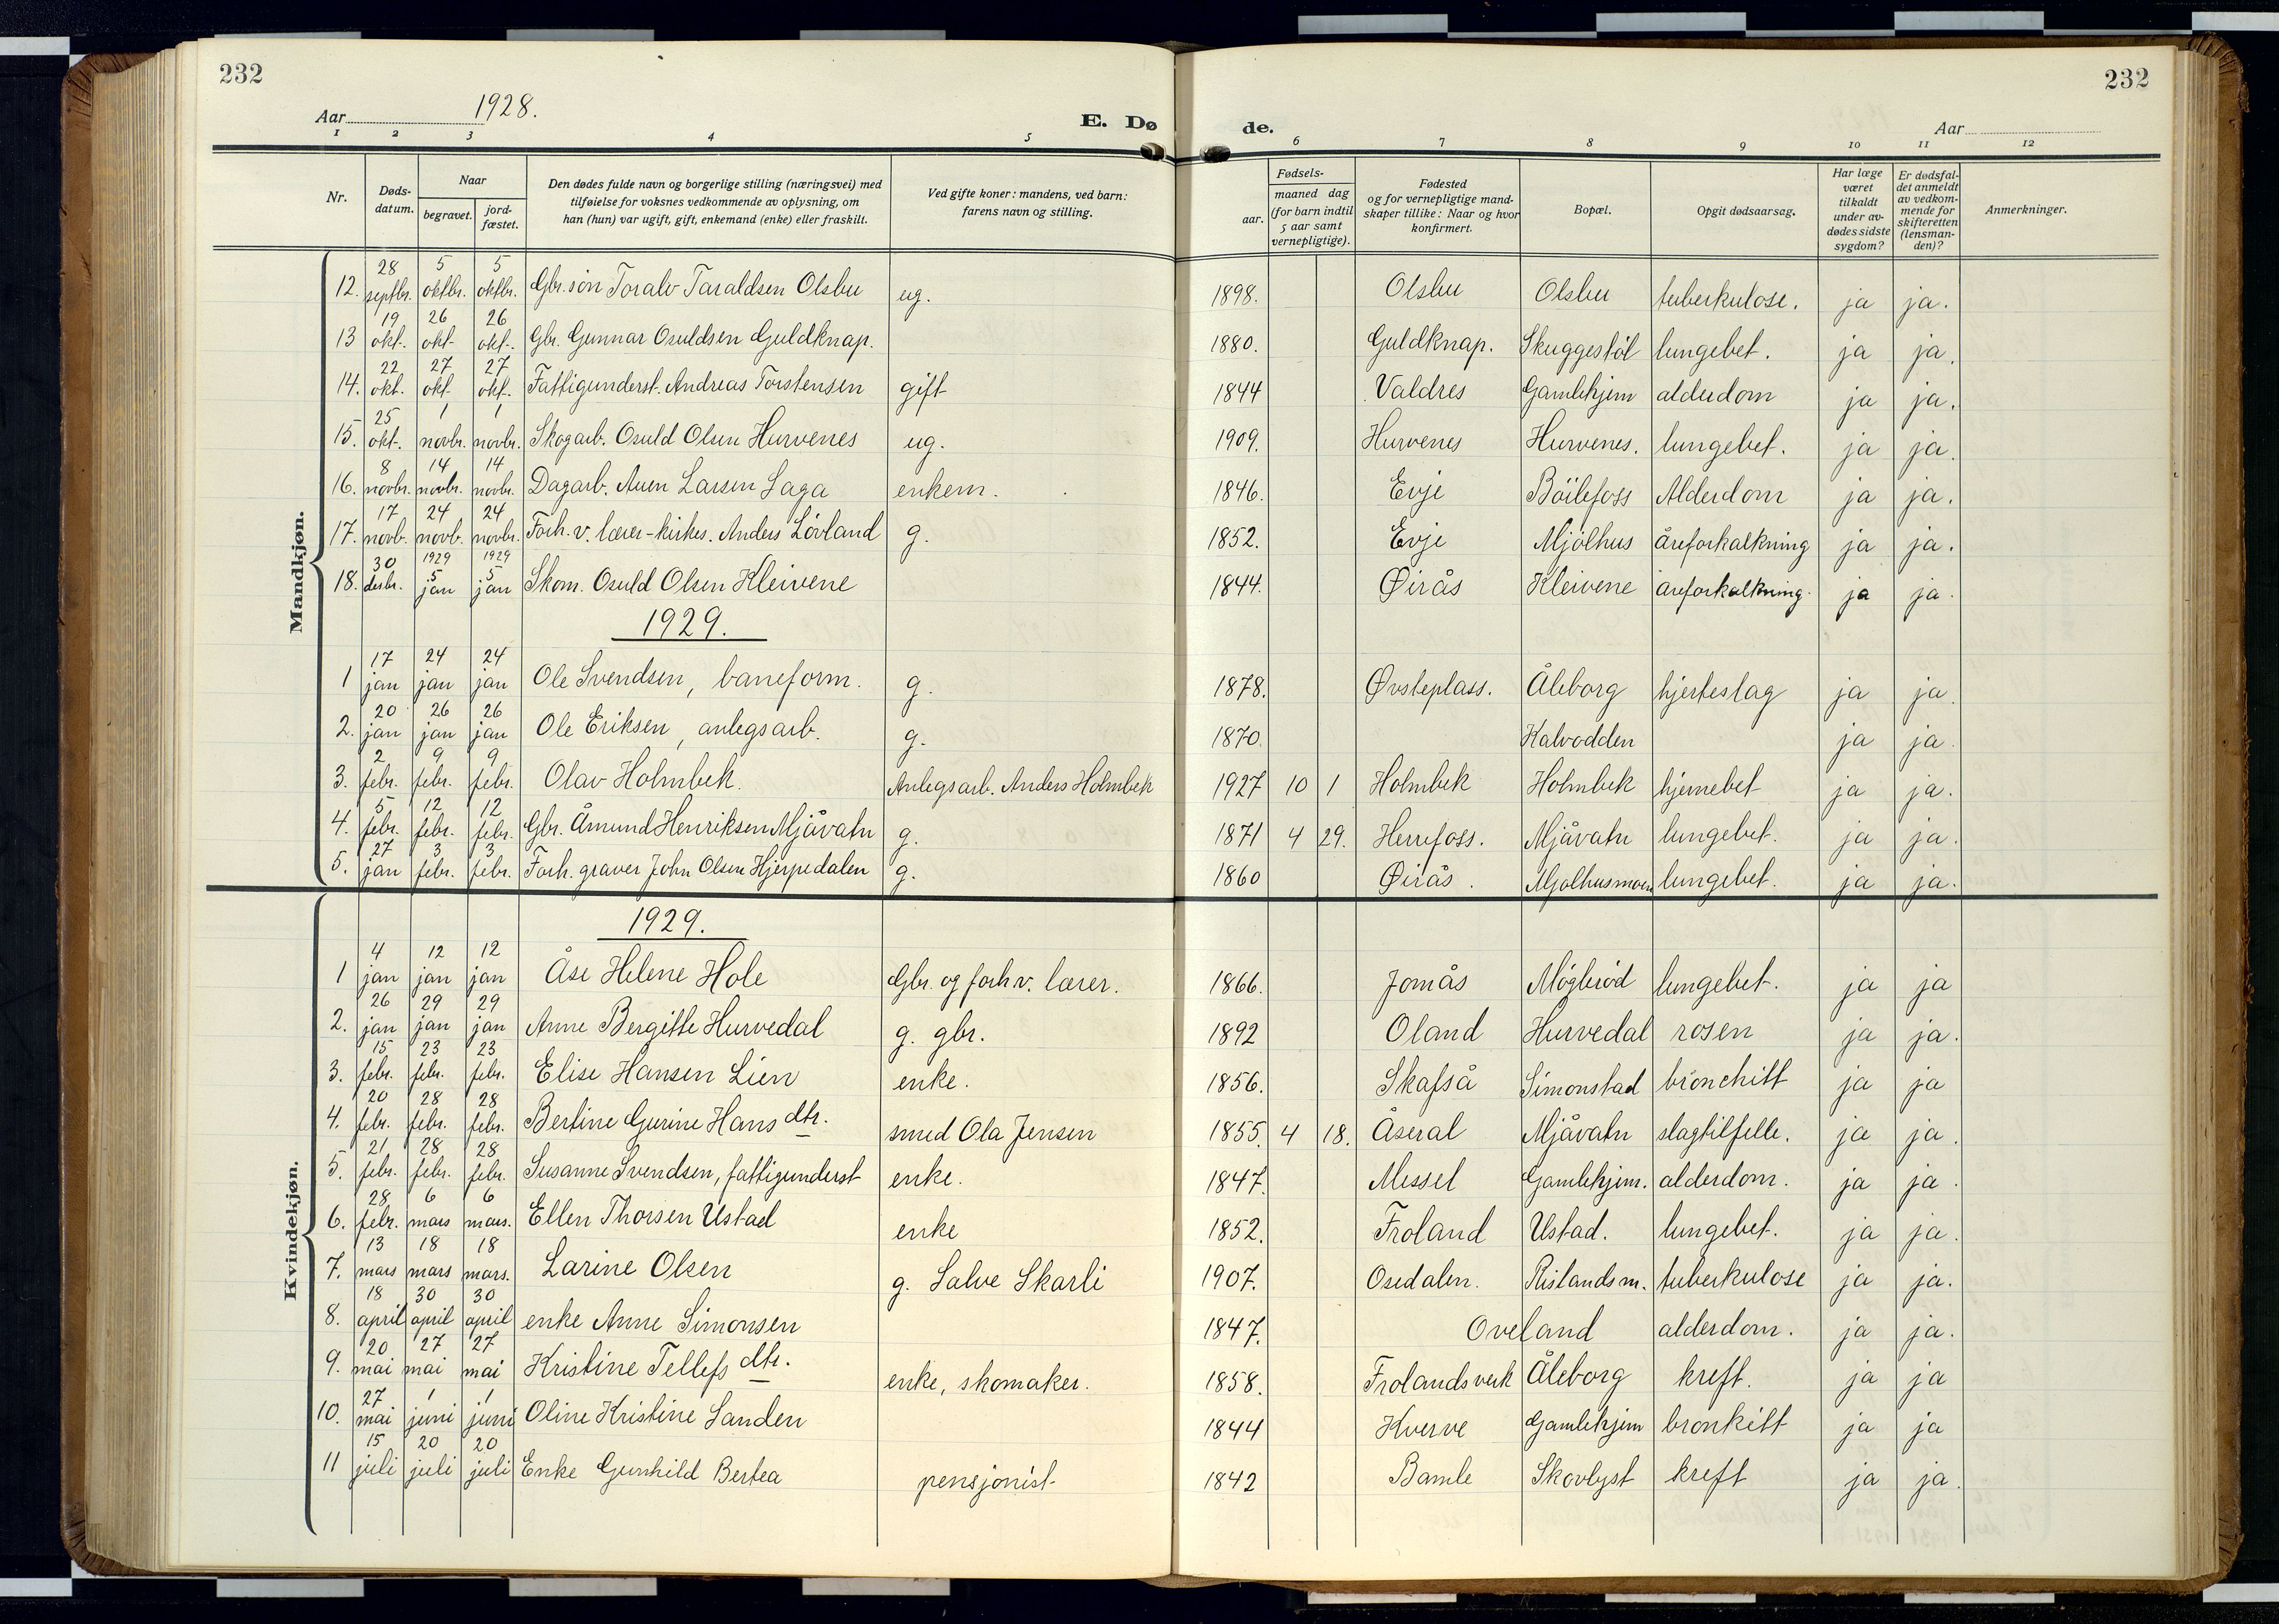 232
Aar 1928.
E. Dø
de.
Aar
232
1 2 3 4 5 6 7 8 9 10 11 12
Nr. Døds-datum. Naar begravet. jord-fæstet. Den dødes fulde navn og borgerlige stilling (næringsvei) med tilføielse for voksnes vedkommende av oplysning, om han (hun) var ugift, gift, enkemand (enke) eller fraskilt. Ved gifte koner: mandens, ved barn: farens navn og stilling. Fødsels- aar. maaned dag (for barn indtil 5 aar samt vernepligtige). Fødested og for vernepligtige mand-skaper tillike: Naar og hvor konfirmert. Bopæl. Opgit dødsaarsag. Har læge været tilkaldt under av-dødes sidste sygdom? Er dødsfal-det anmeldt av vedkom-mende for skifteretten (lensman-den)? Anmerkninger.
Mandkjøn.
12. 28 septbr. 5 oktbr. 5 oktbr. Gbr. søn Toralv Taraldsen Olsbu ug. 1898. Olsbu Olsbu tuberkulose. ja ja.
13 19 okt. 26 okt. 26 okt. Gbr. Gunnar Osuldsen Guldknap. 1880. Guldknap. Skuggestöl lungebet. ja ja.
14. 22 okt. 27 okt. 27 okt. Fattigunderst. Andreas Torstensen gift 1844 Valdres Gamlehjem alderdom ja ja.
15. 25 okt. 1 novbr. 1 novbr. Skogarb. Osuld Olsen Hurvenes ug. 1909. Hurvenes Hurvenes. lungebet. ja ja.
16. 8 novbr. 14 novbr. 14 novbr. Dagarb. Auen Larsen Laga enkem. 1846. Evje Böilefoss Alderdom ja ja.
17. 17 novb. 24 novb. 24 novbr. Forh. v. lærer-kirkes. Anders Lövland g. 1852. Evje Mjölhus åreforkalkning ja ja.
18. 30 desbr. 1929 5 jan 1929 5 jan Skom. Osuld Olsen Kleivene 1844. Øirås Kleivene åreforkalkning. ja ja.
1929.
1 17 jan 24 jan 24 jan Ole Svendsen, baneform. g. 1878. Øvsteplass. Åleborg hjerteslag ja ja.
2. 20 jan 26 jan 26 jan Ole Eriksen, anlegsarb. g. 1870. Kalvodden ja ja.
3. 2 febr. 9 febr. 9 febr. Olav Holmbek. Anlegsarb. Anders Holmbek 1927 10 1 Holmbek Holmbek hjernebet ja ja.
4. 5 febr. 12 febr. 12 febr. Gbr. Åmund Henriksen Mjåvatn g. 1871 4 29. Herrefoss. Mjåvatn lungebet. ja ja.
5. 27 jan 3 febr. 3 febr. Forh. graver John Olsen Hjerpedalen g. 1860 Øirås. Mjølhusmoen lungebet. ja ja.
Kvindekjøn.
1929.
1 4 jan 12 jan 12 jan Åse Helene Hole Gbr. og forh v. lærer. 1866. Jomås Mögleröd lungebet. ja ja
2. 26 jan 29 jan 29 jan Anne Bergitte Hurvedal g. gbr. 1892 Oland Hurvedal rosen ja ja.
3. 15 febr. 23 febr. 23 febr. Elise Hansen Lien enke. 1856. Skafså Simonstad bronchitt ja ja
4. 20 febr. 28 febr. 28 febr. Bertine Gurine Hans dtr. smed Ola Jensen 1855. 4 18. Åseral Mjåvatn slagtilfelle. ja ja.
5. 21 febr. 28 febr. 28 febr. Susanne Svendsen, fattigunderst enke. 1847. Messel Gamlehjem. alderdom. ja ja.
6. 28 febr. 6 mars 6 mars. Ellen Thorsen Ustad enke 1852. Froland Ustad. lungebet. ja ja.
7. 13 mars 18 mars 18 mars. Larine Olsen g. Salve Skarli 1907. Osedalen. Rislandsm. tuberkulose ja ja.
8. 18 april 30 april 30 april enke Anne Simonsen 1847. Oveland alderdom. ja ja.
9. 20 mai 27 mai 27 mai Kristine Tellefs dtr. enke, skomaker. 1858. Frolandsverk Åleborg kreft. ja ja
10. 27 mai 1 juni 1 juni Oline Kristine Sanden 1844 Kverve Gamlehjem bronkitt ja ja
11 15 juli 20 juli 20 juli Enke Gunhild Bertea pensjonist 1842 Bamle Skovlyst kreft ja ja.